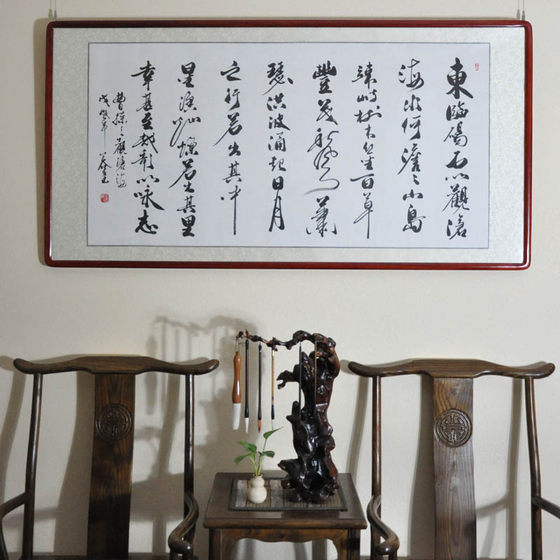 東臨碣石以觀滄
海水何澹々山島
竦峙樹木叢生百草
豐茂秋風蕭
瑟洪波涌起日月
之行若出其中
星漢燦爛若出其里
幸甚至哉歌以詠志
曹操之觀滄海
戊戌年